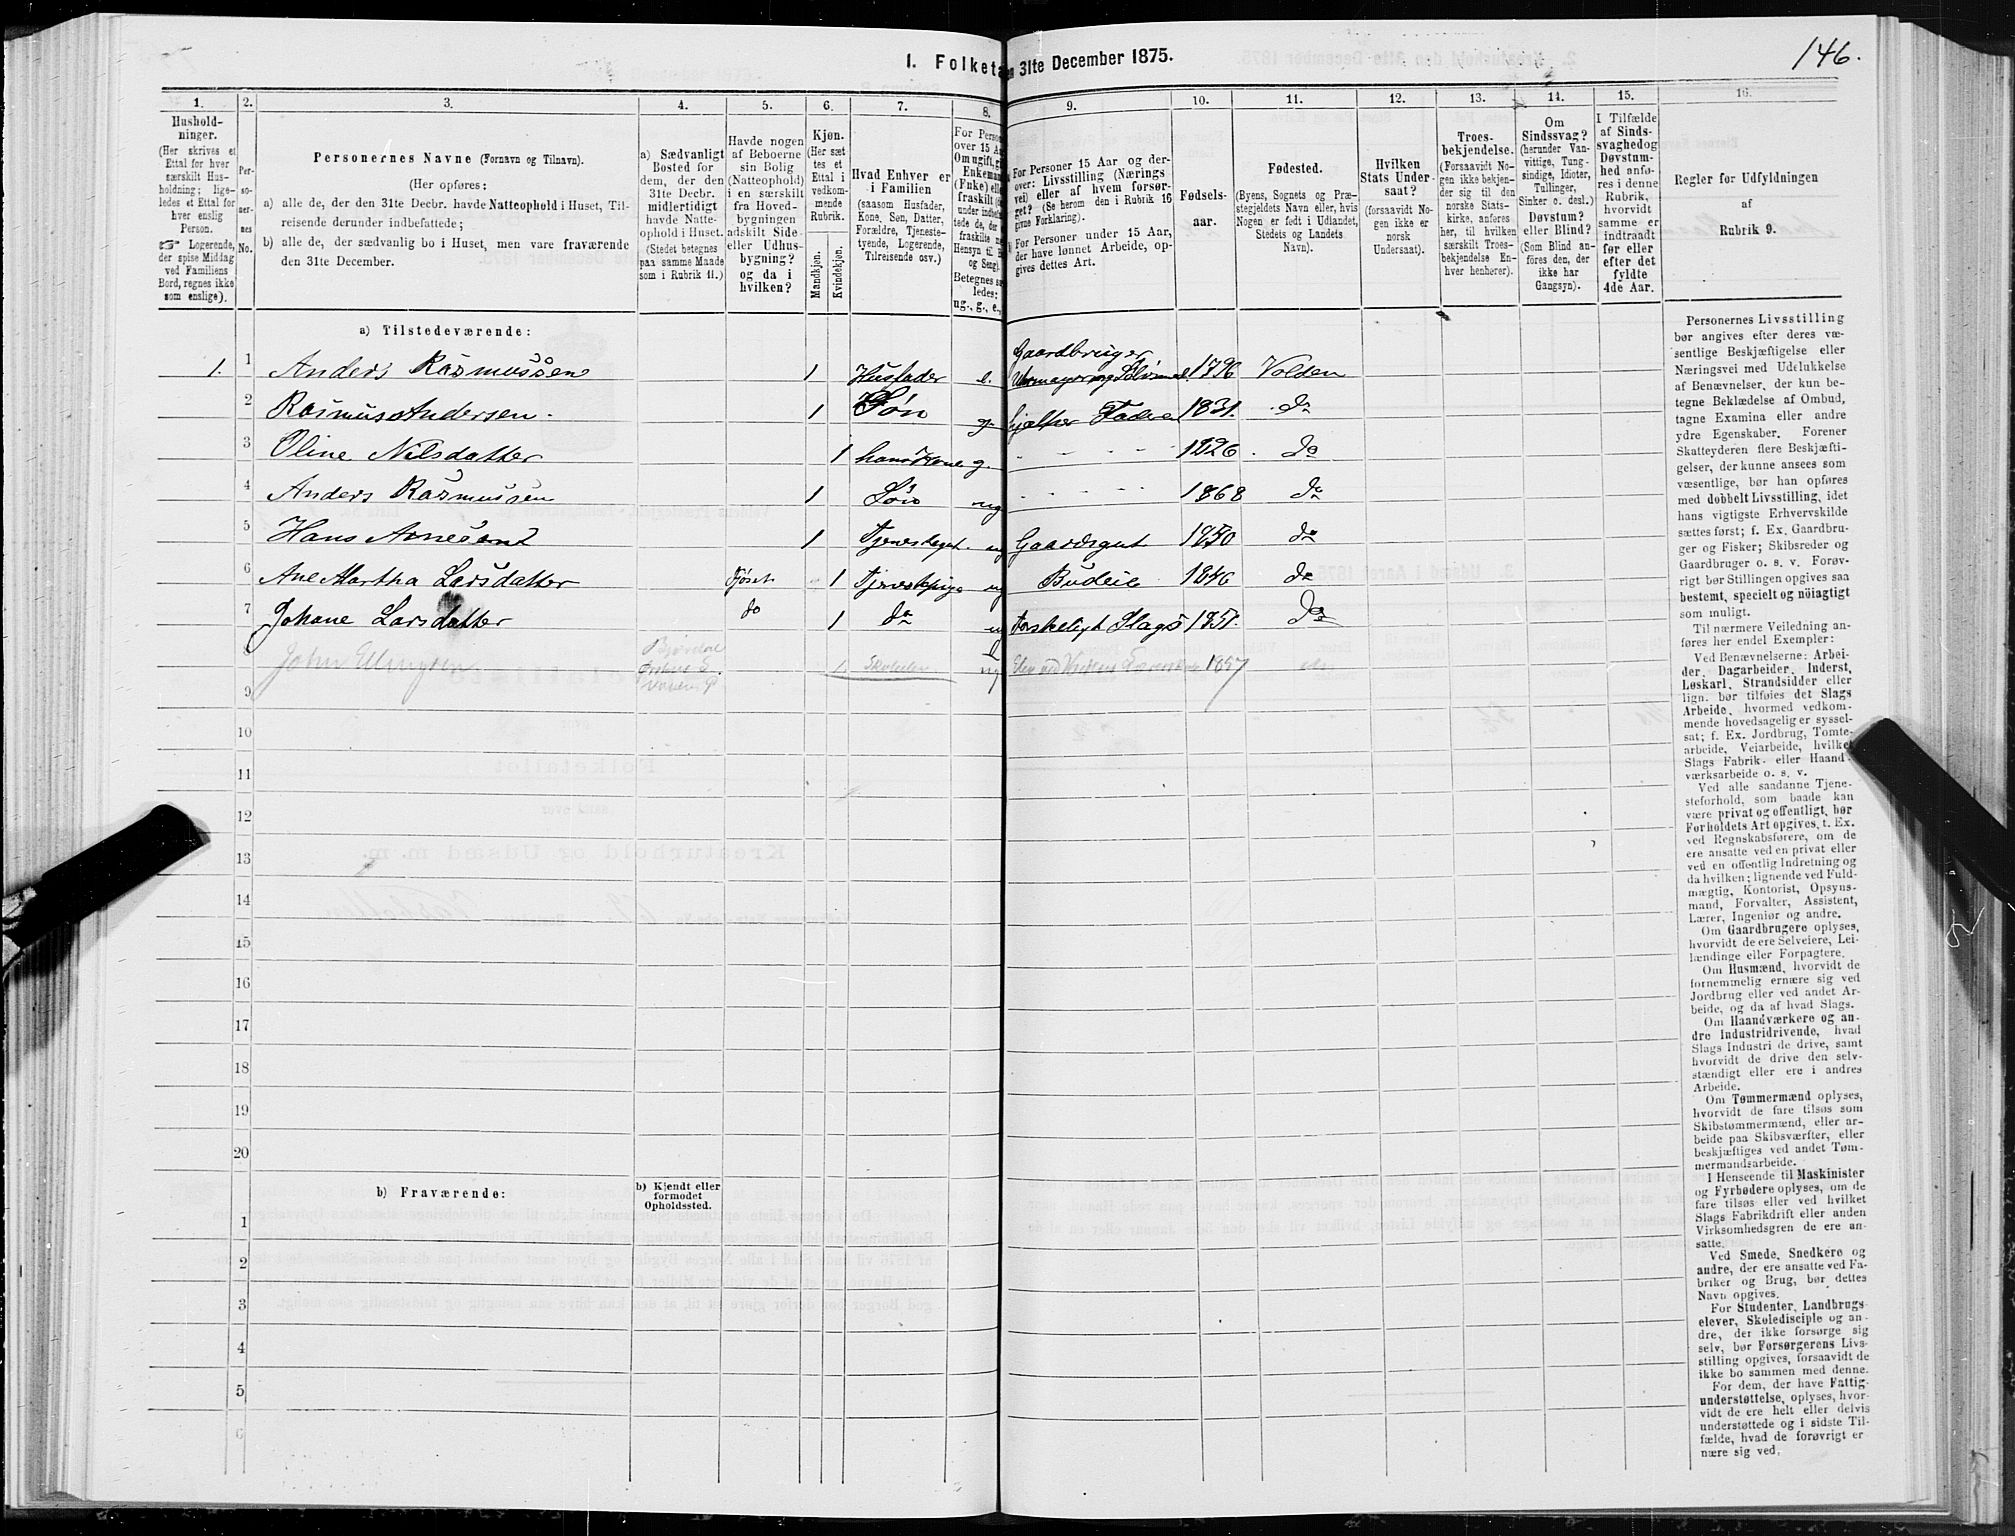 146.
1. Folketa
n 31te December 1875.
1. 2. 3. 4. 5. 6. 7. 8. 9. 10. 11. 12. 13. 14. 15. 16.
Hushold-
ninger.
(Her skrives et
Ettal for hver
særskilt Hus-
holdning; lige-
ledes et Ettal for
hver enslig
Person.
☞ Logerende,
der spise Middag
ved Familiens
Bord, regnes ikke
som enslige).
Per-
so-
ner-
nes
No.
Personernes Navne (Fornavn og Tilnavn).
(Her opføres:
a) alle de, der den 31te Decbr. havde Natteophold i Huset, Til-
reisende derunder indbefattede;
b) alle de, der sædvanlig bo i Huset, men vare fraværende
den 31te December.
a) Sædvanligt
Bosted for
dem, der den
31te Decbr.
midlertidigt
havde Natte-
ophold i Huset.
(Stedet betegnes
paa samme Maade
som i Rubrik 11.)
Havde nogen
af Beboerne
sin Bolig
(Natteophold)
i en særskilt
fra Hoved-
bygningen
adskilt Side-
eller Udhus-
bygning?
og da i
hvilken?
Kjøn.
(Her sæt-
tes et
Ettal i
vedkom-
mende
Rubrik.
Mandkjøn.
Kvindekjøn.
Hvad Enhver er
i Familien
(saasom Husfader,
Kone, Søn, Datter,
Forældre, Tjeneste-
tyende, Logerende,
Tilreisende osv.)
For Perso
over 15 A
Om ugift, gi
Enkeman
(Fnke) ell
fraskilt (
under indbe
tede de, der
fraskilte m
Hensyn til B
og Seng).
Betegnes sa
ledes:
ug., g., e.,
For Personer 15 Aar og der-
over: Livsstilling (Nærings
vei) eller af hvem forsør-
get? (Se herom den i Rubrik 16
givne Forklaring).
For Personer under 15 Aar,
der have lønnet Arbeide, op-
gives dettes Art.
Fødsels-
aar.
Fødested.
(Byens, Sognets og Præ-
stegjeldets Navn eller, hvis
Nogen er født i Udlandet,
Stedets og Landets
Navn).
Hvilken
Stats Under-
saat?
(forsaavidt No-
gen ikke er
norsk
Undersaat).
Troes-
bekjendelse.
(Forsaavidt No-
gen ikke bekjen-
der sig til den
norske Stats-
kirke, anføres
her, til hvilken
særskilt Troes-
bekjendelse En-
hver henhører).
Om
Sindssvag?
(herunder Van-
vittige, Tung-
sindige, Idioter,
Tullinger,
Sinker o. desl.)
Døvstum?
eller Blind?
(Som Blind an-
føres den, der
ikke har
Gangsyn).
I Tilfælde
af Sinds-
svaghed og
Døvstum-
hed anfø-
res i denne
Rubrik,
hvorvidt
samme er
indtraadt
før eller
efter det
fyldte
4de Aar.
Regler for Udfyldningen
af
Rubrik 9.
a) Tilstedeværende:
1. 1 Anders Rasmussen 1 Husfader e. Gaardbruger 1796 Volden
2 Rasmus Andersen. 1 Søn g. hjælper Faderen 1831. do
3 Oline Nilsdatter 1 hans Kone g. 1826. do
4 Anders Rasmussen 1 Søn ug 1868 do
5 Hans Arnesen 1 ug Gaardsgut 1850 do
6 Ane Martha Larsdatter 1 ug Budeie 1846 do
7 Johane Larsdatter do 1 do ug forskeligt Slags 1851. do
8 ug 1857
9
10
11
12
13
14
15
16
17
18
19
20
b) Fraværende:
b) Kjendt eller
formodet
Opholdssted.
1
2
3
4
5
6
Personernes Livsstilling
bør angives efter deres væ-
sentlige Beskjæftigelse eller
Næringsvei med Udelukkelse
af Benævnelser, der kun be-
tegne Beklædelse af Ombud,
tagne Examina eller andre
ydre Egenskaber. Forener
Skatteyderen flere Beskjæfti-
gelser, der kunne ansees som
væsentlige, bør han opføres
med dobbelt Livsstilling, idet
hans vigtigste Erhvervskilde
sættes først; f. Ex. Gaardbru-
ger og Fisker; Skibsreder og
Gaardbruger o. s. v. Forøv-
rigt bør Stillingen opgives saa
bestemt, specielt og nøiagtigt
som muligt.
Til nærmere Veiledning an-
føres her endel Exempler:
Ved Benævnelserne: Arbei-
der, Dagarbeider, Inderst,
Løskarl, Strandsidder eller
lign. bør tilføies det Slags
Arbeide, hvormed vedkom-
mende hovedsagelig er syssel-
sat; f. Ex. Jordbrug, Tomte-
arbeide, Veiarbeide, hvilket
Slags Fabrik- eller Haand-
værksarbeide o. s. v.
Ved alle saadanne Tjene-
steforhold, som baade kan
være privat og offentligt, bør
Forholdets Art opgives, t. Ex.
ved Regnskabsførere, om de
ere ansatte ved en privat eller
ved en offentlig Indretning og
da hvilken; lignende ved Fuld-
mægtig, Kontorist, Opsyns-
mand, Forvalter, Assistent,
Lærer, Ingeniør og andre.
Om Gaardbrugere oplyses,
hvorvidt de ere Selveiere, Lei-
lændinge eller Forpagtere.
Om Husmænd, hvorvidt de
fornemmelig ernære sig ved
Jordbrug eller ved andet Ar-
beide, og da af hvad Slags.
Om Haandværkere og an-
dre Industridrivende, hvad
Slags Industri de drive, samt
hvorvidt de drive den selv-
stændigt eller ere i andres
Arbeide.
Om Tømmermænd oplyses,
hvorvidt de fare tilsøs som
Skibstømmermænd, eller ar-
beide paa Skibsværfter, eller
beskjæftiges ved andet Tøm-
mermandsarbeide.
I Henseende til Maskinister
og Fyrbødere oplyses, om de
fare tilsøs eller ved hvilket
Slags Fabrikdrift eller anden
Virksomhedsgren de ere an-
satte.
Ved Smede, Snedkere og
andre, der ere ansatte ved Fa-
briker og Brug, bør dettes
Navn opgives.
For Studenter, Landbrugs-
elever, Skoledisciple og an-
dre, der ikke forsørge sig
selv, bør Forsørgerens Livs-
stilling opgives, forsaavidt de
ikke bo sammen med denne.
For dem, der have Fattig-
understøttelse, oplyses, hvor-
vidt de ere helt eller delvis
understøttede og i sidste Til-
fælde, hvad de forøvrigt er-
nære sig ved.